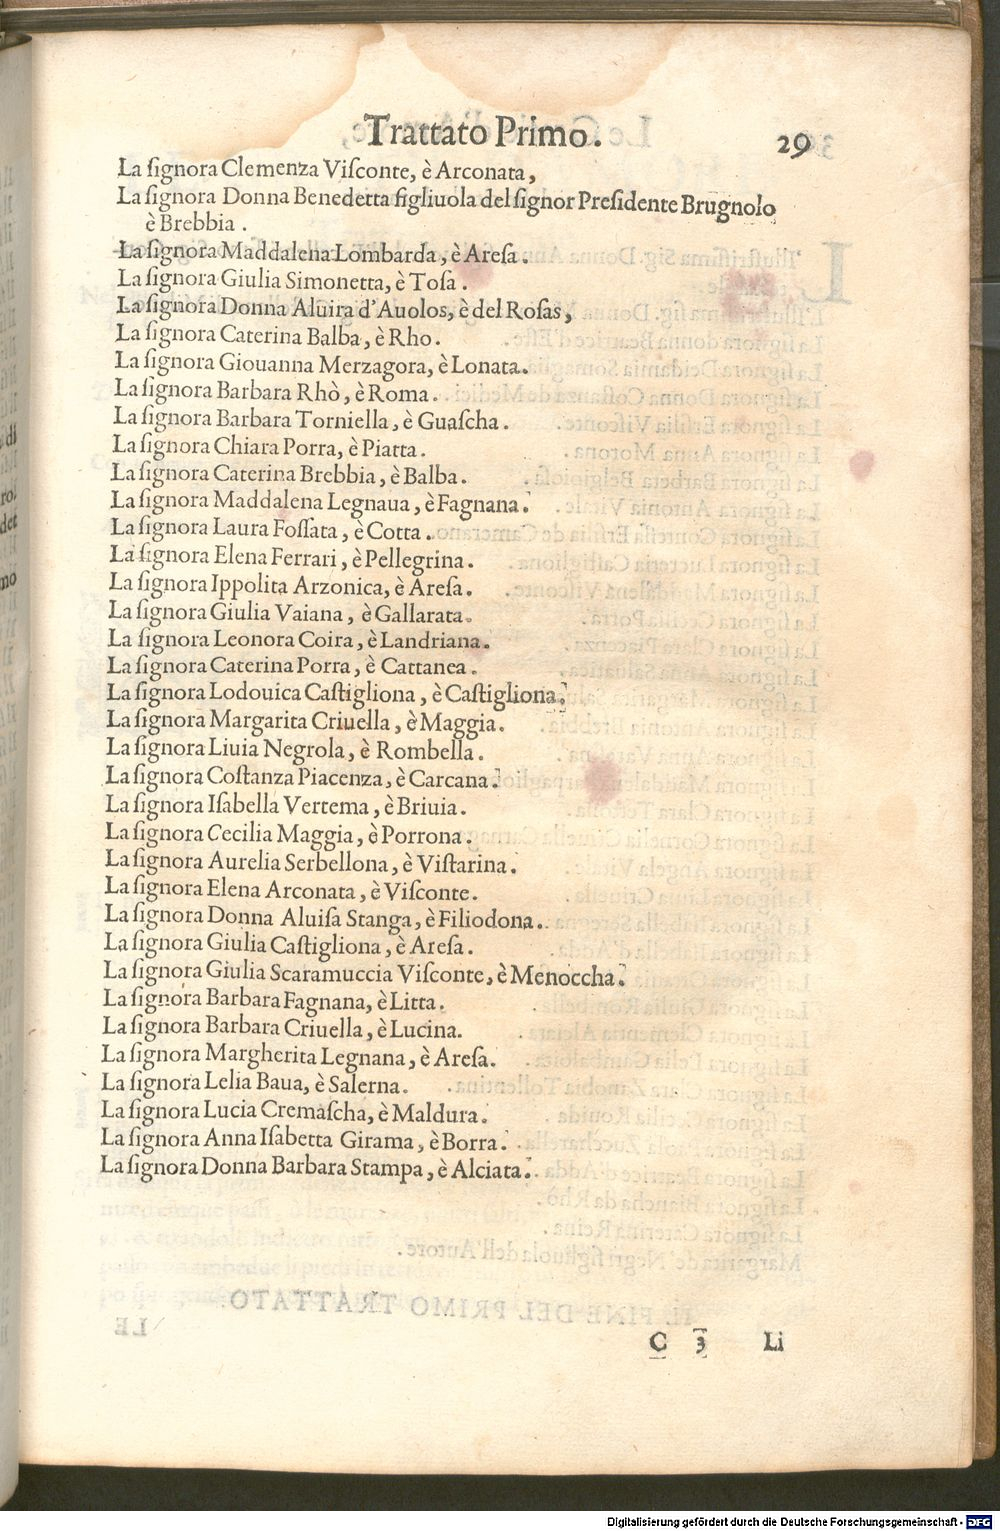 Trattato Primo. 29
La ſignora Clemenza Viſconte, è Arconata,
La ſignora Donna Benedetta figliuola del ſignor Preſidente Brugnolo
è Brebbia .
La ſignora Maddalena Lombarda, è Areſa.
La ſignora Giulia Simonetta, è Toſa .
La ſignora Donna Aluira d'Auolos, è del Roſas,
La ſignora Caterina Balba, è Rho.
La ſignora Giouanna Merzagora, è Lonata.
La ſignora Barbara Rhò, è Roma.
La ſignora Barbara Torniella, è Guaſcha .
La ſignora Chiara Porra, è Piatta.
La ſignora Caterina Brebbia, è Balba.
La ſignora Maddalena Legnaua, è Fagnana.
La ſignora Laura Foſſata, è Cotta.
La ſignora Elena Ferrari, è Pellegrina.
La ſignora Ippolita Arzonica, è Areſa.
La ſignora Giulia Vaiana, è Gallarata.
La ſignora Leonora Coira, è Landriana.
La ſignora Caterina Porra, è Cattanea .
La ſignora Lodouica Caſtigliona, è Caſtigliona.
La ſignora Margarita Criuella, è Maggia.
La ſignora Liuia Negrola, è Rombella.
La ſignora Coſtanza Piacenza, è Carcana.
La ſignora Iſabella Vertema, è Briuia.
La ſignora Cecilia Maggia, è Porrona.
La ſignora Aurelia Serbellona, è Viſtarina.
La ſignora Elena Arconata, è Viſconte.
La ſignora Donna Aluiſa Stanga, è Filiodona.
La ſignora Giulia Caſtigliona, è Areſa.
La ſignora Giulia Scaramuccia Viſconte, è Menoccha.
La ſignora Barbara Fagnana, è Litta.
La ſignora Barbara Criuella, è Lucina.
La ſignora Margherita Legnana, è Areſa.
La ſignora Lelia Baua, è Salerna.
La ſignora Lucia Cremaſcha, è Maldura.
La ſignora Anna Iſabetta Girama, è Borra.
La ſignora Donna Barbara Stampa, è Alciata.
C 3 Li
Digitalisierung gefördert durch die Deutsche Forschungsgemeinschaft - DFG